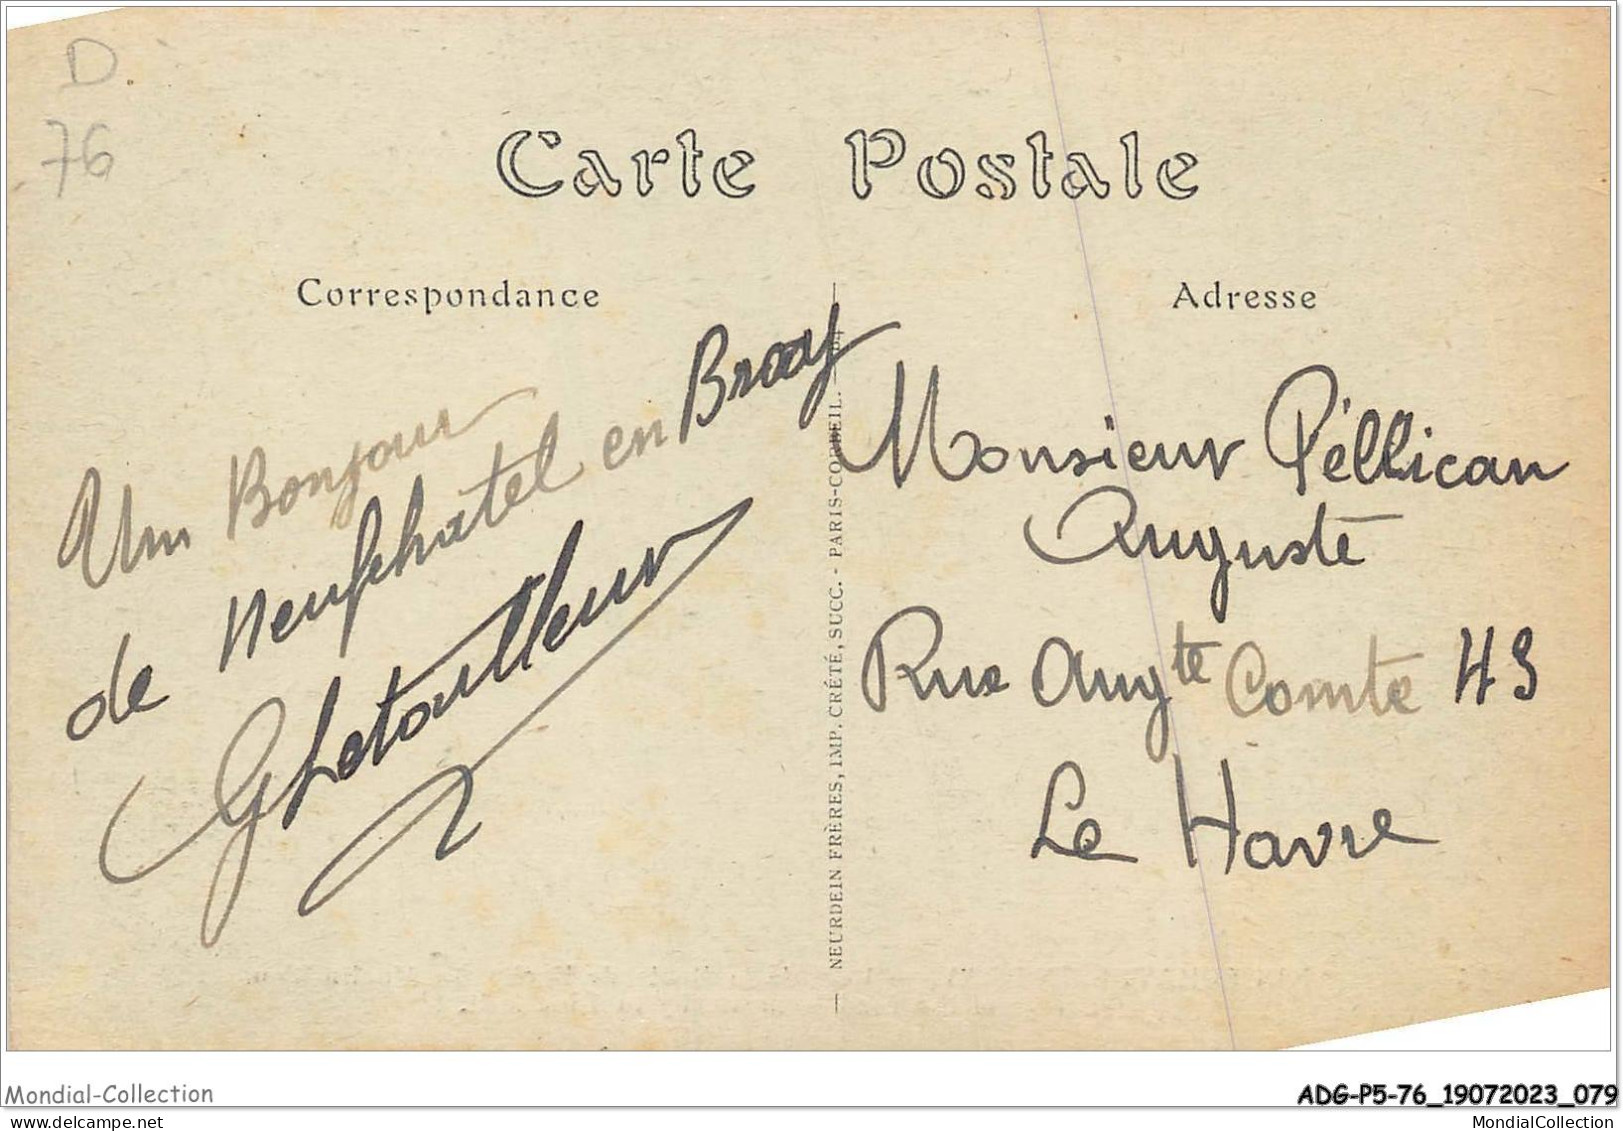 D.
76
Carte Postale
Correspondance
Adresse
Un Bonjour
de Neufchatel en Bray
GLetoulleur
NEURDEIN FRÈRES, IMP. CRÉTÉ, SUCC. - PARIS-CORBEIL.
Monsieur Péllican
Auguste
Rue Augte Comte 43
Le Havre
Mondial-Collection
ADG-P5-76_19072023_079
mondial-collection.com
MondialCollection